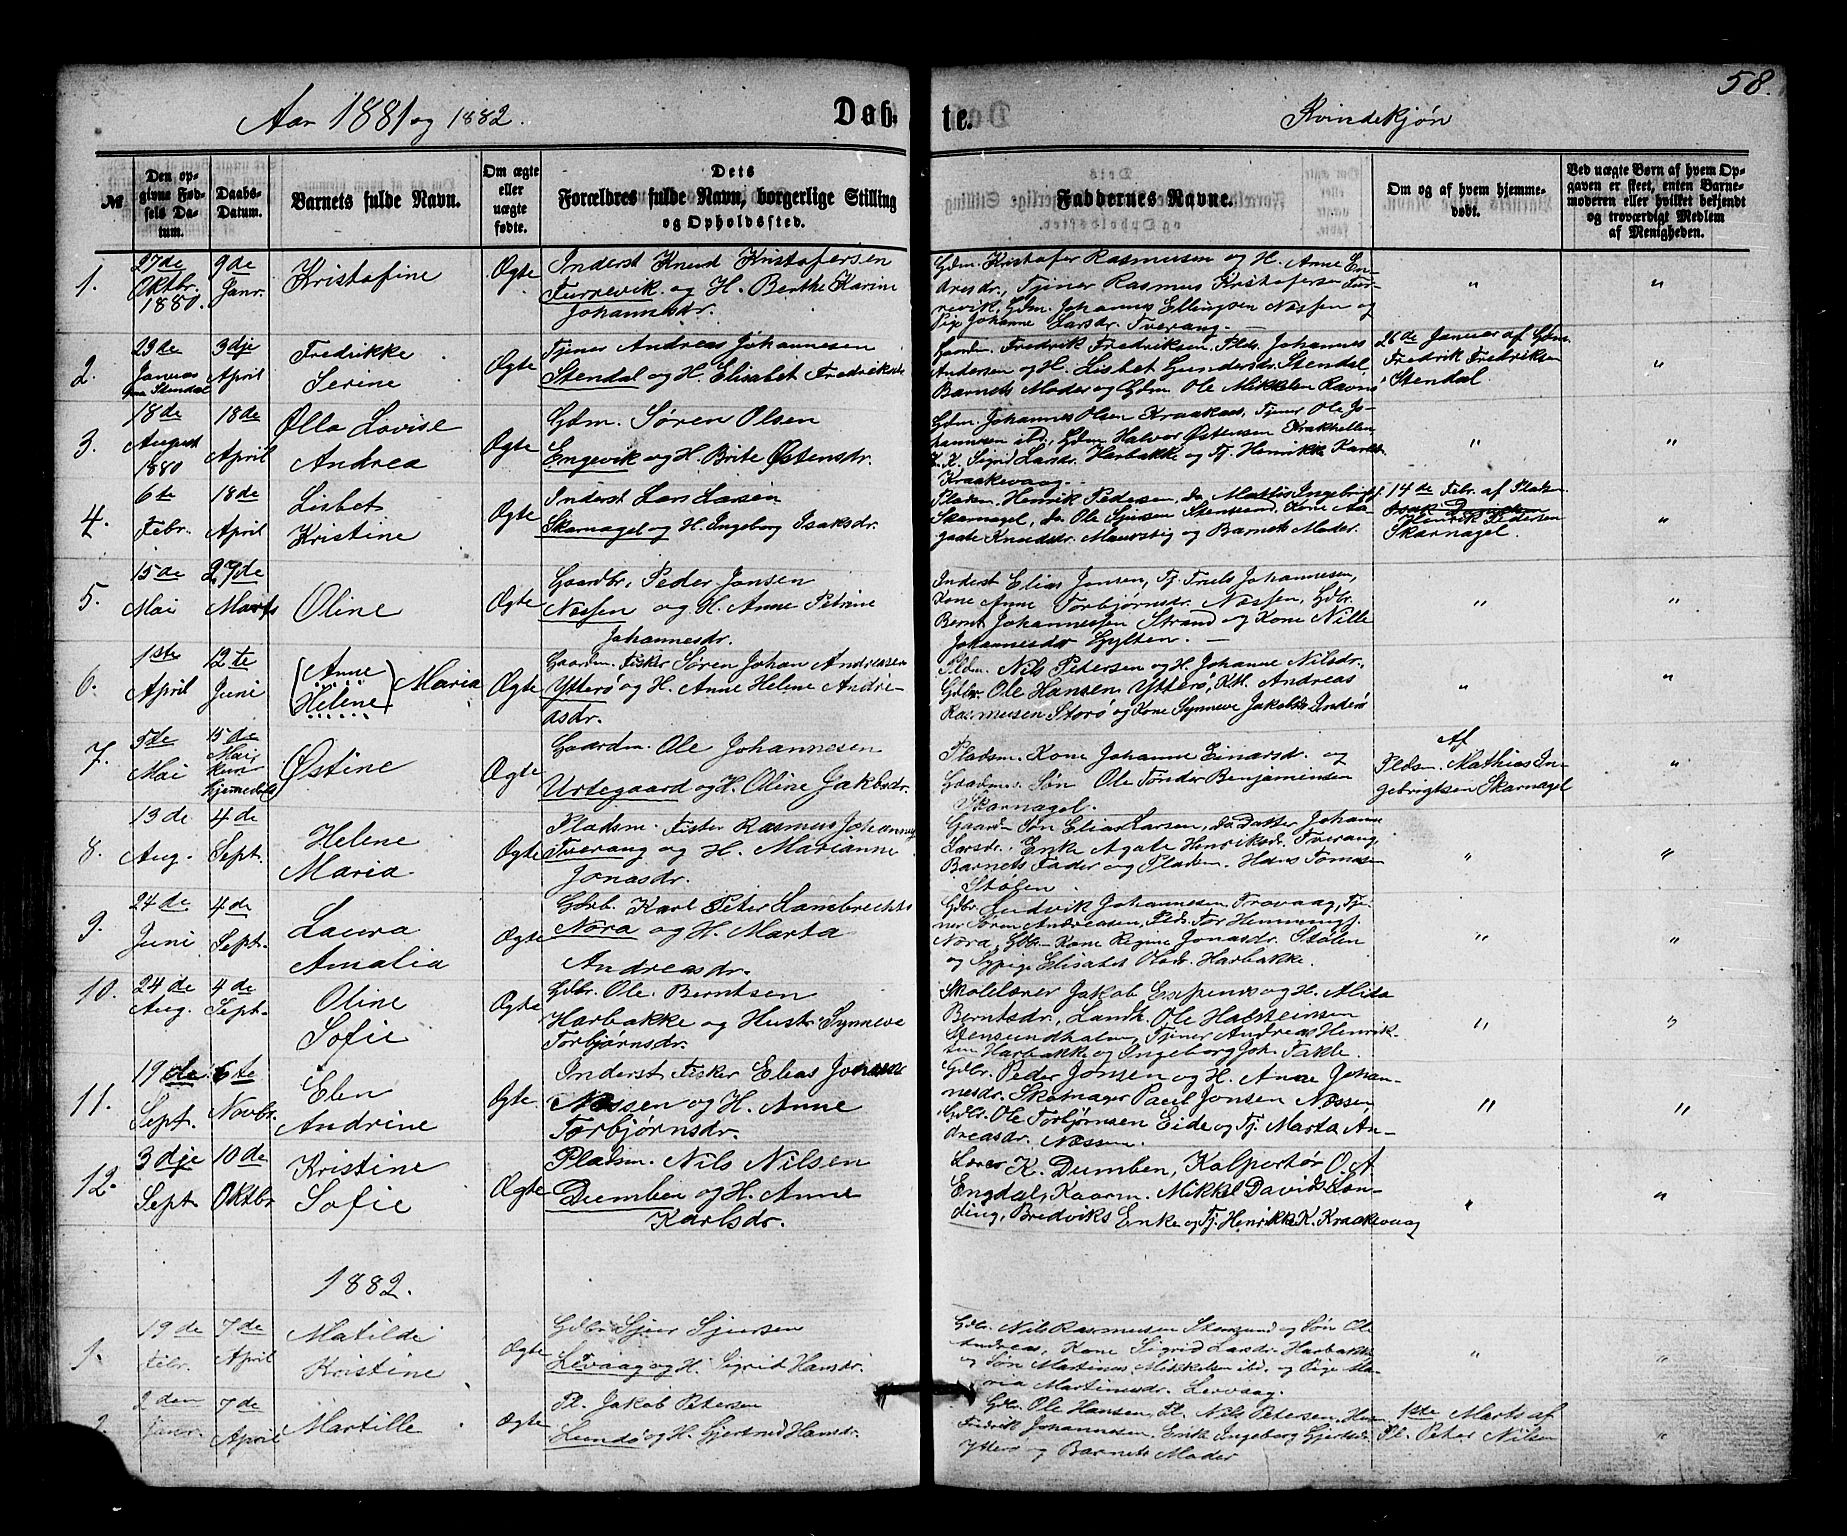 58.
Aar 1881 og 1882.
Døb-
te.
Kvindekjøn
№
Den opgivne Fødsels Datum.
Daabs-Datum.
Barnets fulde Navn.
Om ægte eller uægte fødte.
Dets Forældres fulde Navn, borgerlige Stilling og Opholdssted.
Faddernes Navne.
Om og af hvem hjemmedøbt.
Ved uægte Børn af hvem Opgaven er skeet, enten Barnemoderen eller hvilket bekjendt og troværdigt Medlem af Menigheden.
1.
27de Oktbr. 1880.
9de Janr.
Kristofine
Ægte
Inderst Knud Kristofersen
Furrevik og H. Berthe Karine
Johannesdr.
Gdm. Kristofer Rasmusen og H. Anne En-
dresdr., Tjener Rasmus Kristofersen Fur-
revik, Gdm. Johannes Ellingsen Næssen og
Pige Johanne Larsdr. Tverang.
"
"
2.
29de Januar
Stendal
3dje April
Fredrikke
Serine
Ægte
Tjener Andreas Johannesen
Stendal og H. Elisabet Fredriksdr.
Gaardm. Fredrik Fredriksen, Plds. Johannes
Andersen og H. Lisbet Gundersdr. Stendal,
Barnets Moder og Gdm. Ole Mikkelsen Ravnø
26de Januar af Gdm.
Fredrik Fredriksen
Stendal.
"
3.
18de August 1880
18de April
Olla Lovise
Andrea
Ægte
Gdm. Søren Olsen
Engevik og H. Brite Østensdr.
Gdm. Johannes Olsen Kraakaas, Tjener Ole Jo-
hannesen ibd., Gdm. Halvor Østensen Krakhellen
K. Sigrid Larsdr. Harbakke og Tj. Henrikke Karlsdr.
Kraakevaag.
"
"
4.
6te Febr.
18de April
Lisbet
Kristine
Ægte
Inderst Lars Larsen
Skarnagel og H. Ingeborg Isaksdr.
Pladsm. Henrik Pedersen, do Mattis Ingebrigts.
Skarnagel, do. Ole Sjursen Stensund, Kone Aa-
gaate Knudsdr. Maurstig og Barnets Moder.
14de Febr. af Pladsm.
Henrik Pedersen
Skarnagel.
"
5.
15de Mai
27de Marts
Oline
Ægte
Gaardbr. Peder Jonsen
Næssen og H. Anne Petrine
Johannesdr.
Inderst Elias Jonsen, Tj. Truls Johannesen,
Kone Anne Torbjørnsdr. Næssen, Gdbr.
Bernt Johannessen Strand og Kone Nille
Johannesdr Gylten.
"
"
6.
1ste April
12te Juni
(Anne Helene) Maria
Ægte
Gaardm. Fisker Søren Johan Andreasen
Ytterø og H. Anne Helene Andre-
asdr.
Pldm. Nils Petersen og H. Johanne Nilsdr.
Gdbr. Ole Hansen Ytterø, Kth. Andreas
Rasmusen Storø og Kone Synneve Jakobsdr. Inderø
"
"
7.
5te Mai
15de Mai, kun hjemedøbt
Østine
Ægte
Gaardm. Ole Johannesen
Urtegaard og H. Oline Jakobsdr.
Pladsm. Kone Johanne Einarsd. og
Gaardm. Søn Ole Tønder Benjaminsen
Skarnagel.
Af
Plds. Mathias In-
gebrigtsen Skarnagel
"
8.
13de Aug.
4de Sept.
Helene
Maria
Ægte
Pladsm. Fisker Rasmus Johannes
Tverang og H. Marianne
Jonasdr.
Gaard- Søn Elias Larsen, do Datter Johanne
Larsdr., Enke Agate Henriksdr. Tverang,
Barnets Fader og Pladsm. Hans Tomasen
Stølen.
"
"
9.
24de Juni
4de Sept.
Laura
Amalia
Ægte
Gdrb. Karl Peter Lambrechts
Nora og H. Marta
Andreasdr.
Gdbr. Ludvik Johannesen Trovaag, Tje-
ner Søren Andreasen, Plds. Tor Hemmingsen
Nora, Gdbr. Kone Regine Jonasdr. Stølen
og Sypige Elisabet Olsdr. Harbakke.
"
"
10.
24de Aug.
4de Sept.
Oline
Sofie
Ægte
Gdbr. Ole Berntsen
Harbakke og Hustr. Synneve
Torbjørnsdr.
Skolelærer Jakob Espenes og H. Alida
Berntsdr., Landh. Ole Halsteinsen
Stensundholm, Tjener Andreas Henrik-
sen Harbakke og Ingeborg Joh. Takle.
"
"
11.
19de Sept.
6te Novbr.
Elen
Andrine
Ægte.
Inderst Fisker Elias Johanse
Næssen og H. Anne
Torbjørnsdr.
Gdbr. Peder Jonsen og H. Anne Johan-
nesdr. Skomager Paul Jonsen Næssen
Gdbr. Ole Torbjørnsen Eide og Tj. Marta An-
dreasdr. Næssen.
"
"
12.
3dje Sept.
10de Oktbr
Kristine
Sofie
Ægte
Pladsm. Nils Nilsen
Dumben og H. Anne
Karlsdr.
Lærer K. Dumben, Kolportør O. A
Engdal, Kaarm. Mikkel Davidsen Lon-
ding, Bredviks Enke og Tj. Henrikke K. Kraakevaag
"
"
1882.
1.
19de Febr.
7de April
Matilde
Kristine
Ægte
Gdbr. Sjur Sjursen
Levaag og H. Sigrid Hansdr.
Gdbr. Nils Rasmusen Stensund og Søn Ole
Andreas, Kone Sigrid Larsdr. Harbakke
og Søn Martinus Mikkelsen ibd. og Pige Ma-
ria Martinesdr. Levaag.
"
"
2.
2den Janr.
7de April
Martille
Ægte
Pl. Jakob Petersen
Lundø og H. Gjertrud Hansdr.
Gdbr. Ole Hansen, Pl. Nils Petersen,
Fredrik Johannesen, Enke Ingeborg Gjertsdr.
Ytterø og Barnets Moder
1ste Marts af
Pl. Peter Nilsen
"